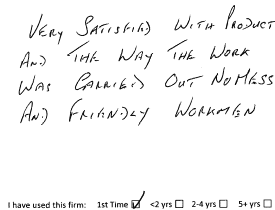 VERY SATISFIED WITH PRODUCT
AND THE WAY THE WORK
WAS CARRIED OUT NO MESS
AND FRIENDLY WORKMEN
I have used this firm: 1st Time ☑ <2 yrs ☐ 2-4 yrs ☐ 5+ yrs ☐